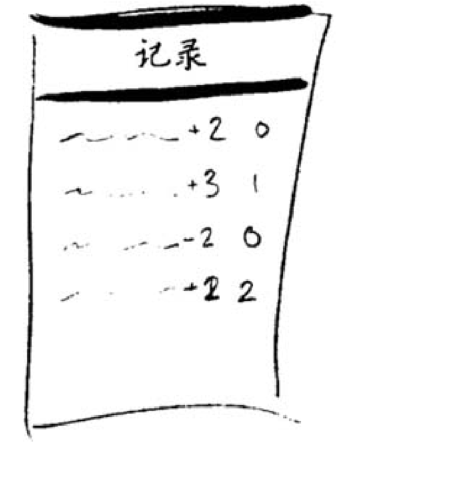 记录
+2 0
+3 1
-2 0
2